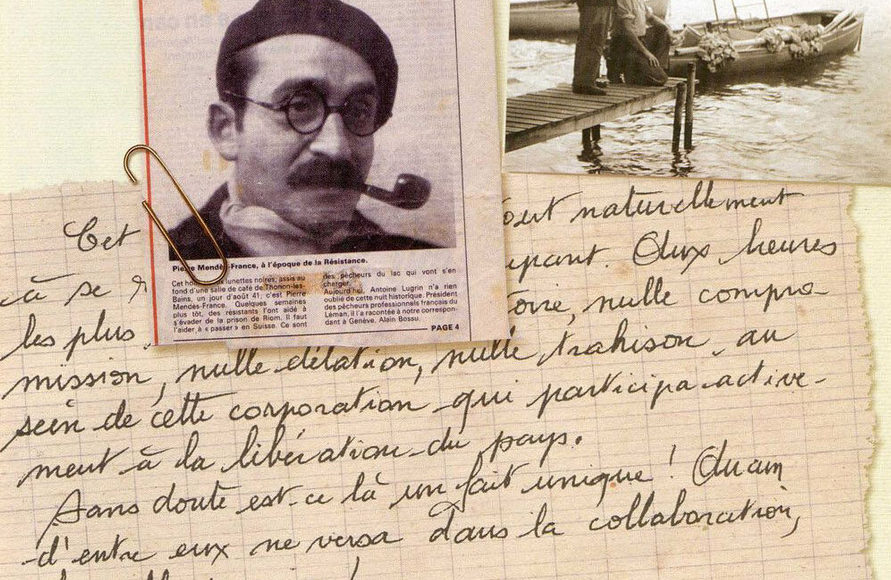 Pierre Mendès-France, à l'époque de la Résistance.
Cet lunettes noires, assis au
fond d'une salle de café de Thonon-les-
Bains, un jour d'août 41, c'est Pierre
Mendès-France. Quelques semaines
plus tôt, des résistants l'ont aidé à
s'évader de la prison de Riom. Il faut
l'aider à « passer » en Suisse. Ce sont
des pêcheurs du lac qui vont s'en
charger.
Aujourd'hui, Antoine Lugrin n'a rien
oublié de cette nuit historique. Président
des pêcheurs professionnels français du
Léman, il l'a racontée à notre correspon-
dant à Genève, Alain Bossu.
PAGE 4
Cet naturellement
à se upant. Aux heures
les plus oire, nulle compro-
mission, nulle délation, nulle trahison au
sein de cette corporation qui participa active-
ment à la libération du pays.
Sans doute est-ce là un fait unique ! Aucun
d'entre eux ne versa dans la collaboration,